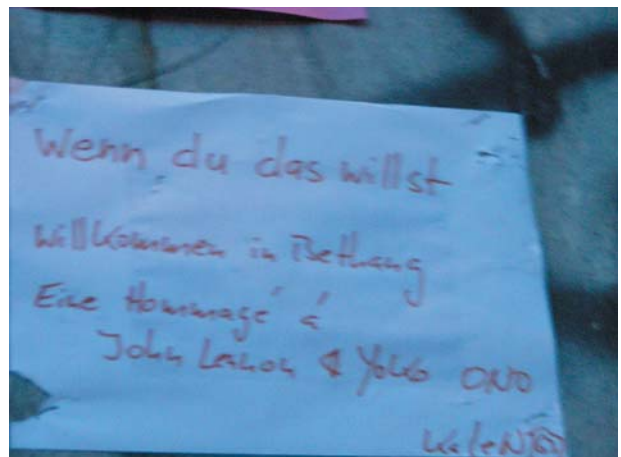 Wenn du das willst
Willkommen in Bethang
Eine Hommagé á
John Lennon & Yoko ONO